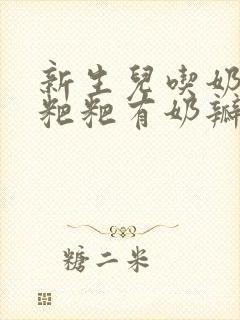 新生兒喫奶
粑粑有奶瓣
糖二米